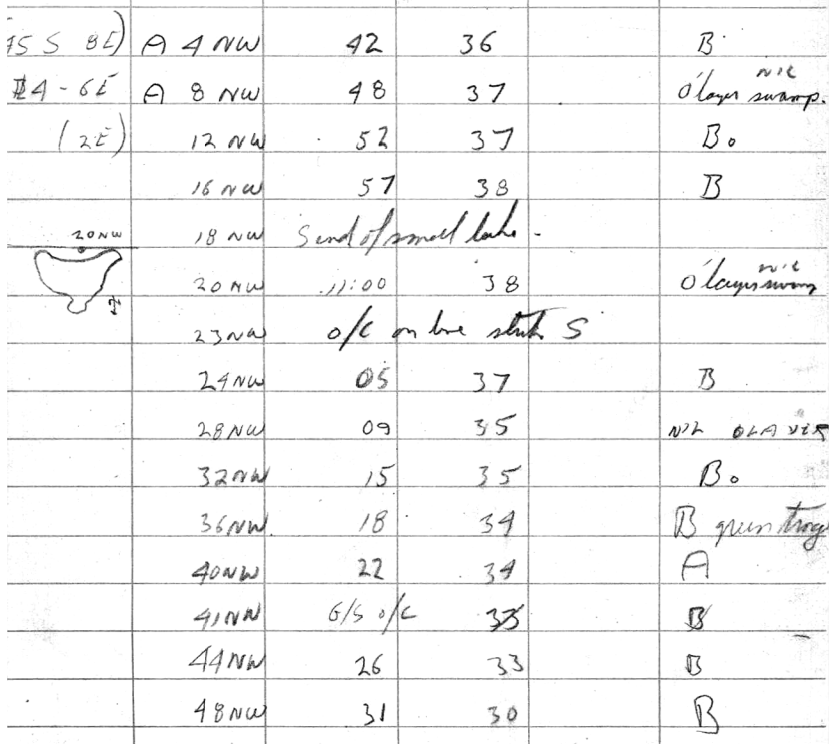 75 S 8E) A 4 NW 42 36 B
4-6E A 8 NW 48 37 O'layer NIL swamp.
(2E) 12 NW 52 37 Bo
16 NW 57 38 B
20NW 18 NW S end of small lake.
20 NW 11:00 38 O'layer NIL swamp
23NW o/c on line S
24NW 05 37 B
28NW 09 35 NIL OLAYER
32NW 15 35 Bo
36NW 18 34 B green
40NW 22 34 A
41NW G/S o/c 33 B
44NW 26 33 B
48NW 31 30 B